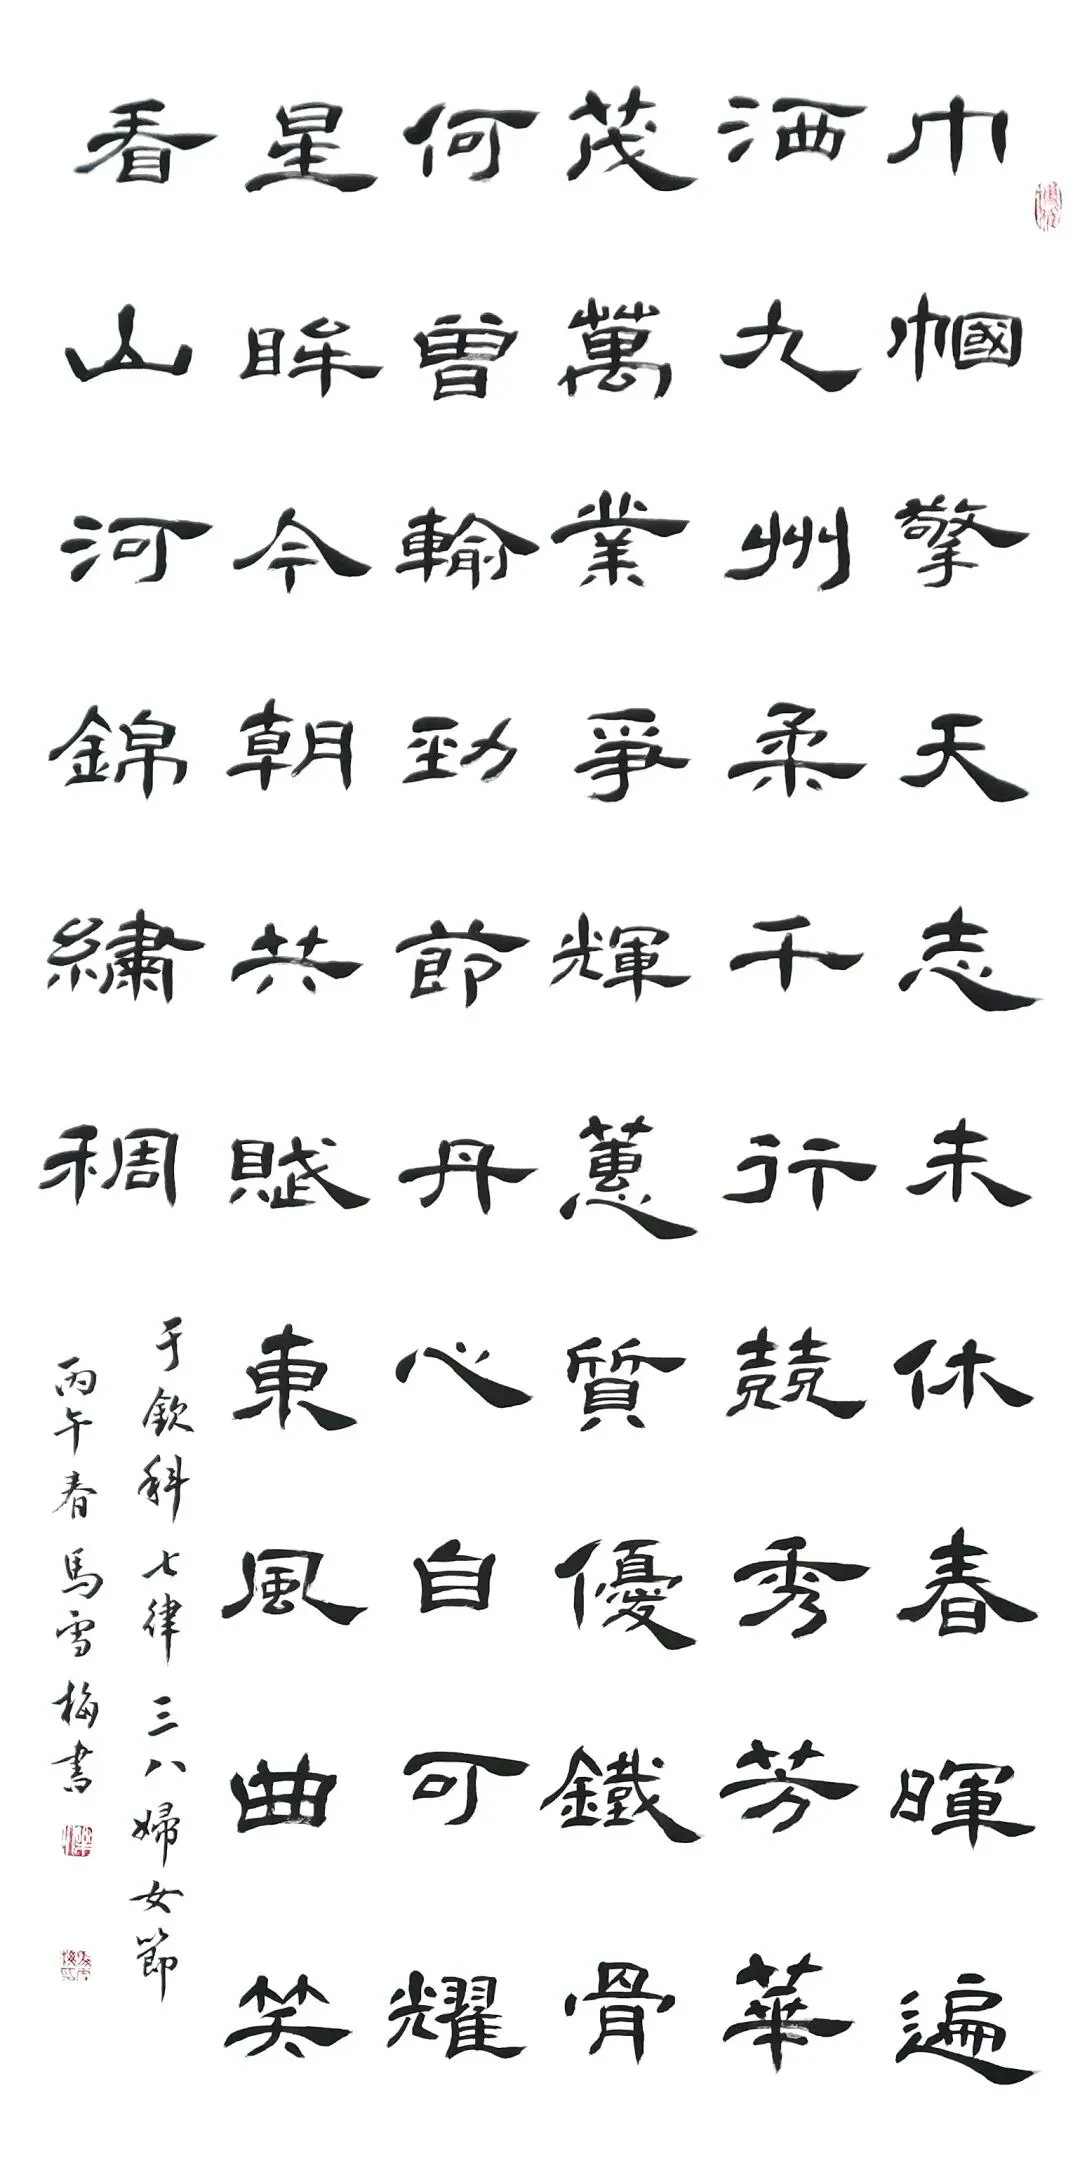 巾幗擎天志未休春暉遍
洒九州柔千行競秀芳華
茂萬業爭輝蕙質優鐵骨
何曾輸勁節丹心自可耀
星眸今朝共賦東風曲笑
看山河錦繡稠
于欽科七律三八婦女節
丙午春馬雪梅書